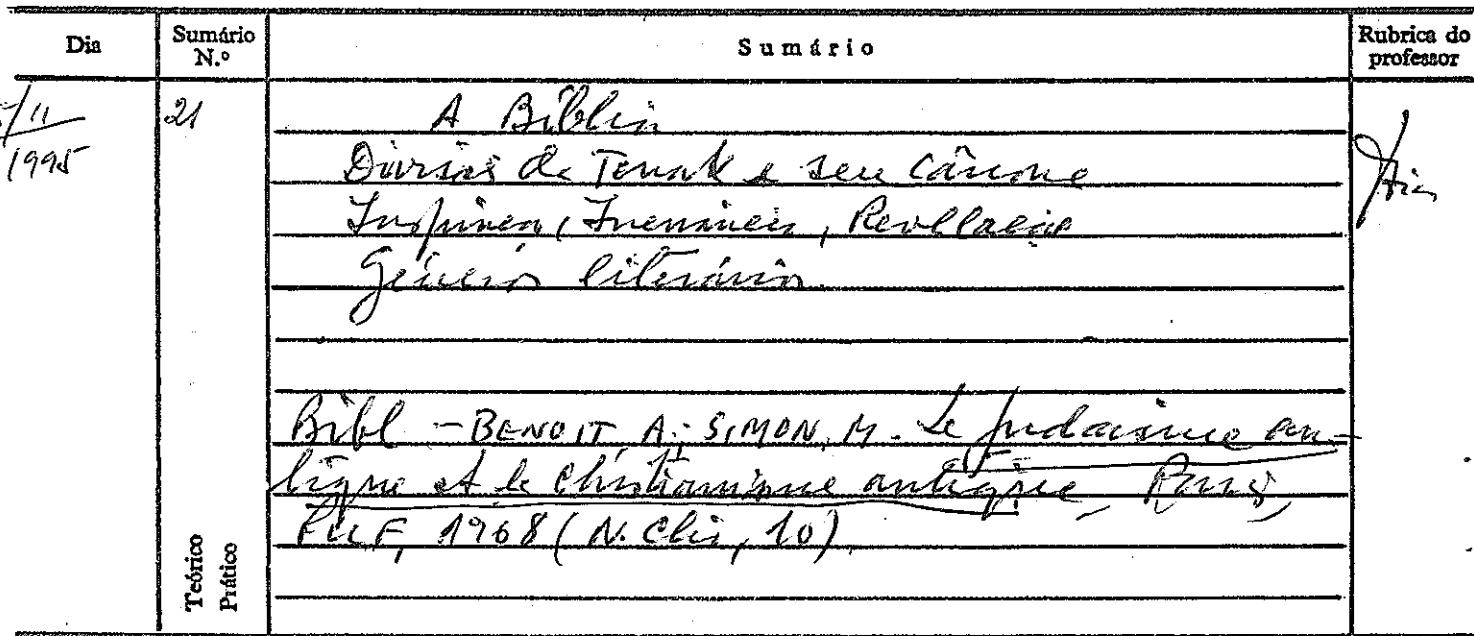 Dia Sumário N.º Sumário Rubrica do professor
/11 1995
21
A Bíblia
Divisão da Tenak e seu cânone
Inspiração, Inerrância, Revelação
Géneros literários.
Bibl - BENOIT A; SIMON, M. - Le Judaïsme an-
tique et le Christianisme antique, Paris,
PUF, 1968 (N. Clio, 10)
Teórico
Prático